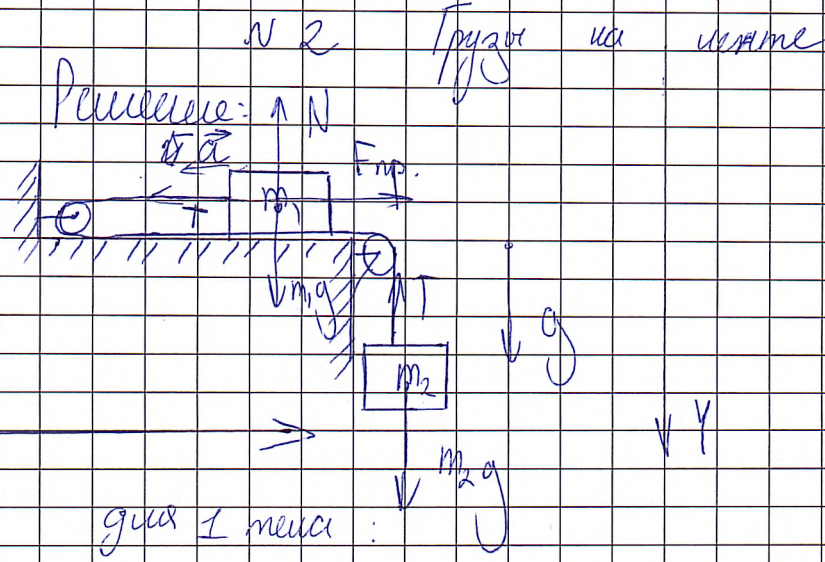 N 2 Грузы на ленте
Решение:
N
a
Fпр.
m₁
T
m₁g
T
g
m₂
Y
m₂g
для 1 тела :